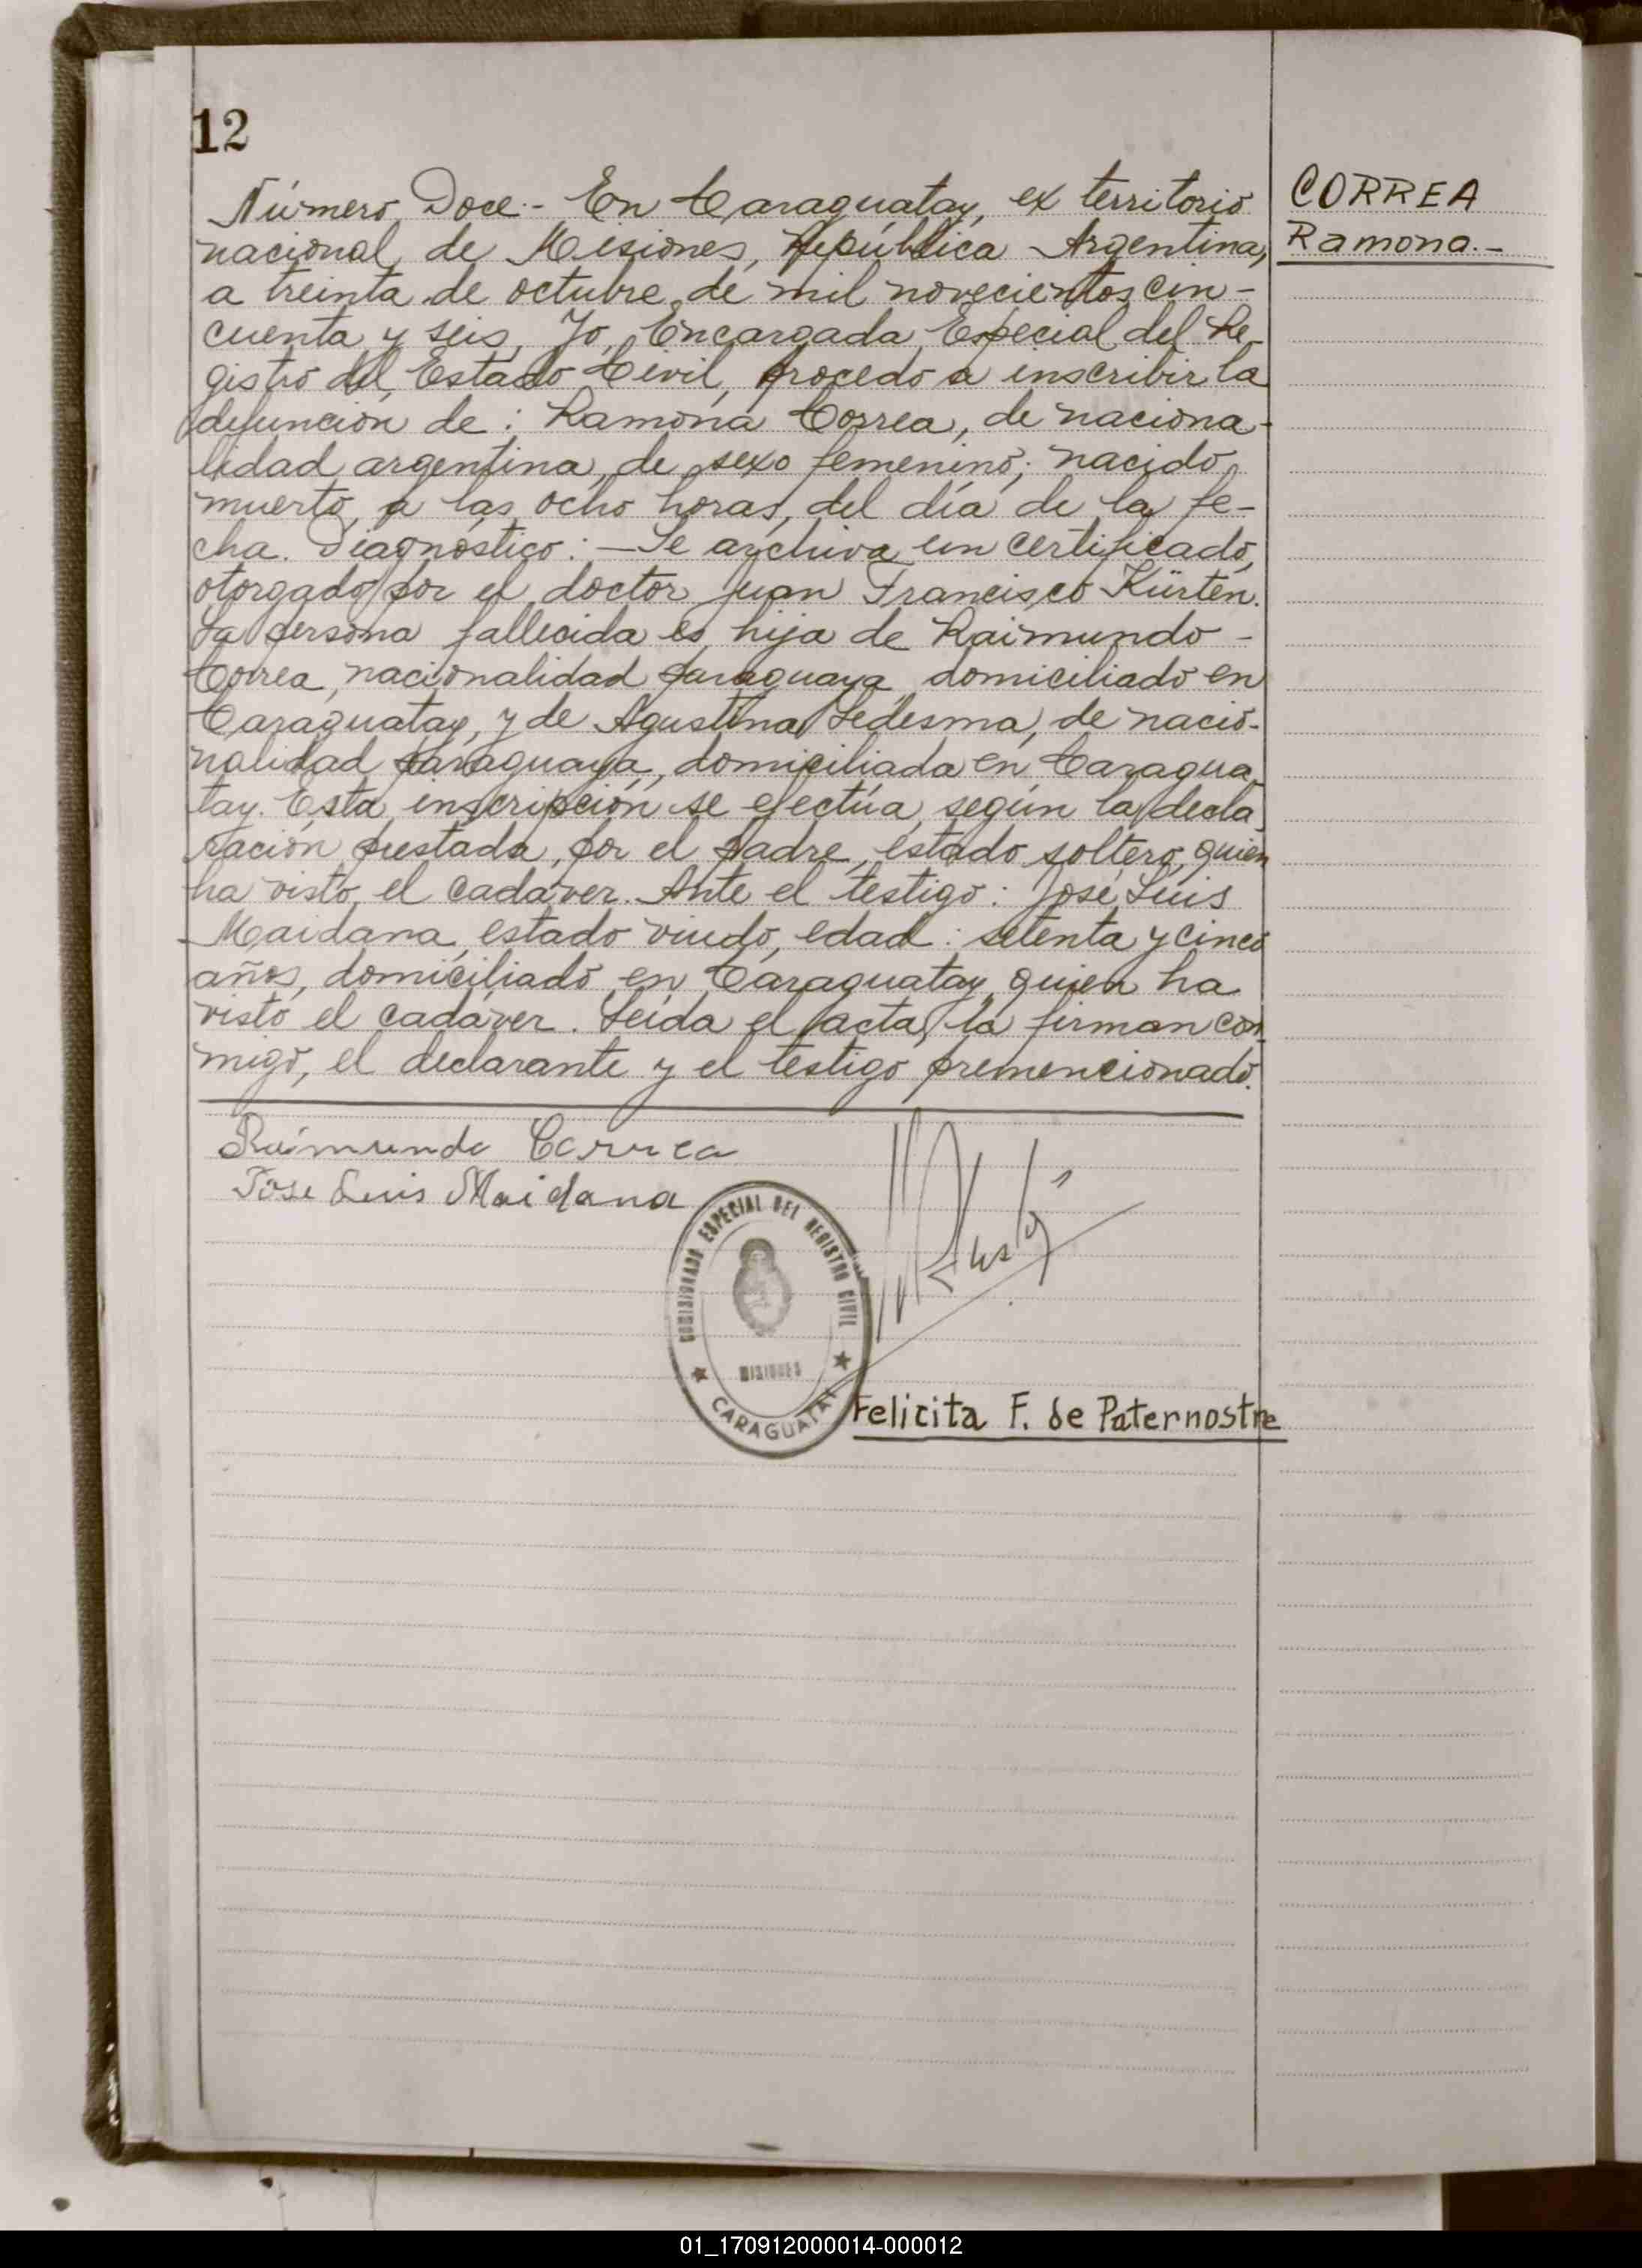 12
Número Doce.- En Caraguatay, ex territorio
nacional de Misiones, República Argentina,
a treinta de octubre de mil novecientos cin-
cuenta y seis, Yo, Encargada Especial del Re-
gistro del Estado Civil, procedo a inscribir la
defuncion de: Ramona Correa, de naciona-
lidad argentina, de sexo femenino; nacido
muerto, a las ocho horas, del día de la fe-
cha. Diagnostico: — Se archiva un certificado,
otorgado por el doctor Juan Francisco Kürten.
La persona fallecida es hija de Raimundo -
Correa, nacionalidad paraguaya, domiciliado en
Caraguatay, y de Agustina Ledesma, de nacio-
nalidad paraguaya, domiciliada en Caragua-
tay. Esta inscripción se efectúa, según la decla-
ración prestada, por el padre, estado soltero, quien
ha visto el cadáver. Ante el testigo: José Luis
Maidana, estado viudo, edad: setenta y cinco
años, domiciliado en Caraguatay, quien ha
visto el cadáver. Leida el acta, la firman con-
migo, el declarante y el testigo premencionado.
CORREA
Ramona.-
Raimundo Correa
Jose Luis Maidana
COMISIONADO ESPECIAL DEL REGISTRO CIVIL
MISIONES
CARAGUATAY
Felicita F. de Paternostre
01_170912000014-000012